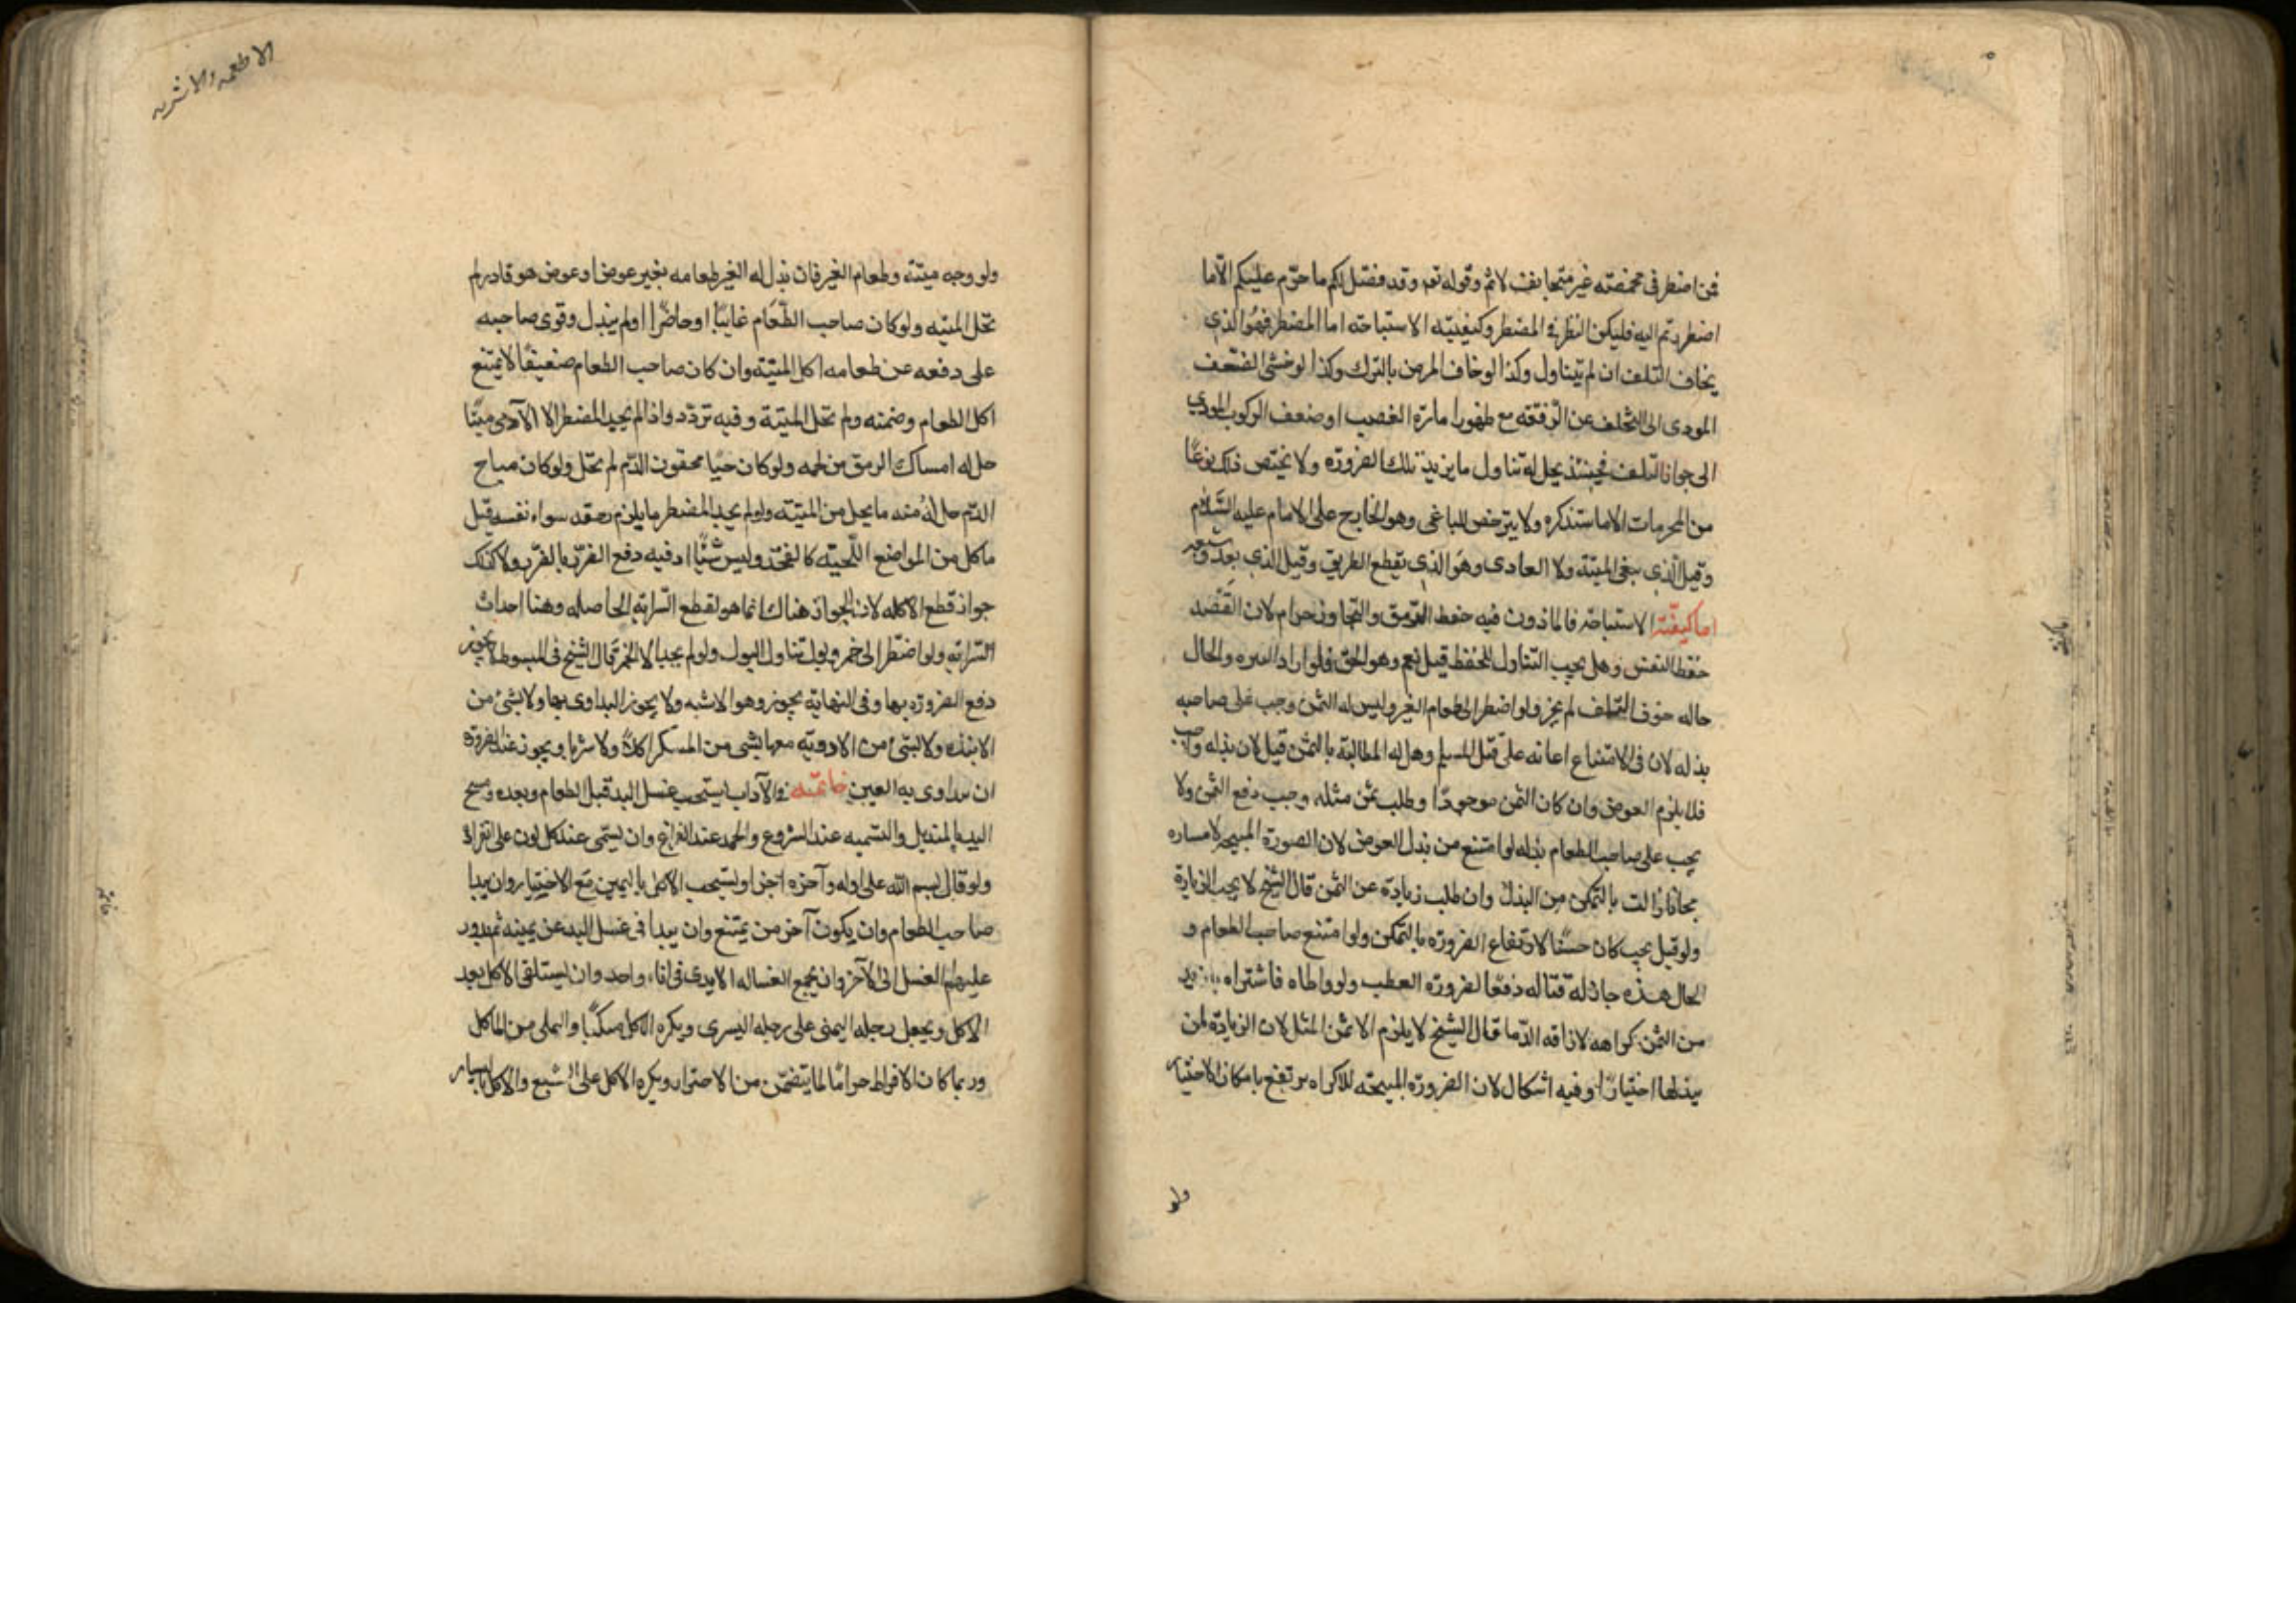 فمن اضطر فى مخمصته غير متجانف لاثم وقوله تعه وقد فصّل لكم ما حرّم عليكم الّا ما
اضطررتم اليه فليكن النظر فى المضطر وكيفيّته الاستباحته اما المضطر فهو الذى
يخاف التلف ان لم يتناول وكذا لو خاف المرض بالترك وكذا لو خشى الضعف
المودى الى التخلف عن الرّفقته مع ظهور امارة العصب او ضعف الركوب المودى
الى جواز التلف فحينئذ يحل له تناول ما يزيد تلك الضرورة ولا يختص ذلك نوعًا
من المحرمات الا ما سنذكره ولا يترخص للباغى وهو الخارج على الامام عليه السّلام
وقيل الّذى يبغى الميتة ولا العادى وهو الذى يقطع الطريق وقيل الذى يعدو
اما كيفيّته الاستباحه فالماذون فيه حفظ الرّمق والتجاوز حرام لان القصد
حفظ النفس وهل يجب التناول للحفظ قيل نعم وهو الحق فلو اراد التنزه والحال
حاله خوف التلف لم يجز ولو اضطر الى طعام الغير وليس له الثمن وجب على صاحبه
بذله لان فى الامتناع اعانه على قتل المسلم وهل له المطالبة بالثمن قيل لان بذله واجب
فلا يلزم العوض وان كان الثمن موجودًا وطلب ثمن مثله وجب دفع الثمن ولا
يجب على صاحب الطعام بذله لو امتنع من بذل العوض لان الضرورة المبيحه
مجانا زالت بالتمكن من البذل وان طلب زيادة عن الثمن قال الشيخ لا يجب الزيادة
ولو قيل يجب كان حسنًا لارتفاع الضرورة بالتمكن ولو امتنع صاحب الطعام و
الحال هذه جاز له قتاله دفعًا لضرورة العطب ولو واطاه فاشتراه بازيد
من الثمن كراهه لاراقه الدّما قال الشيخ لا يلزم الا ثمن المثل لان الزيادة لمن
يبذلها اختيارًا وفيه اشكال لان الضرورة المبيحته للاكراه يرتفع بامكان الاختيار
ولو
الاطعمه والاشربه
ولو وجد ميتته وطعام الغير فان بذل له الغير طعامه بغير عوض او عوض هو قادر لم
تحل الميته ولو كان صاحب الطّعام غايبًا او حاضرًا اولم يبذل وقوى صاحبه
على دفعه عن طعامه اكل الميتة وان كان صاحب الطعام ضعيفًا لا يمتنع
اكل الطعام وضمنه ولم تحل الميتة وفيه تردّد واذا لم يجد المضطر الا الآدمى ميتًا
حل له امساك الرمق من لحمه ولو كان حيًا محقون الدّم لم تحل ولو كان مباح
الدّم حل له منه ما يحل من الميتة ولو لم يجد المضطر ما يلزم رمقه سواء نفسه قيل
ماكل من المواضع اللّحيته كالفخذ وليس شيًا اد فيه دفع الضرر بالضرر ولا كذلك
جواز قطع الاكله لان الجواز هناك انما هو لقطع السّرايه الحاصله وهنا احداث
السّرايه ولو اضطر الى خمر وبول تناول البول ولو لم يجد الا الخمر قال الشيخ فى المبسوط لا يجوز
دفع الضرورة بها وفى النهاية يجوز وهو الاشبه ولا يجوز التداوى بها ولا بشئ من
الانبذه ولا بشئ من الادوية معها بشى من المسكر اكلًا ولا شربا ويجوز عند الضرورة
ان يتداوى به العين خاتمته فى الآداب يستحب غسل اليد قبل الطعام وبعده ومسح
اليد بالمنديل والتسميه عند الشروع والحمد عند الفراغ وان يسمّى عند كل لون على انفراده
ولو قال بسم الله على اوله وآخره اجزا ويستحب الاكل باليمين مع الاختيار وان يبدا
صاحب الطعام وان يكون آخر من يمتنع وان يبدا فى غسل اليد عن يمينه ثم يدور
عليهم الغسل الى الآخر وان يجمع الغساله الايدى فى اناء واحد وان يستلقى الاكل بعد
الاكل ويجعل رجله اليمنى على رجله اليسرى ويكره الاكل متكئًا والتملى من الماكل
وربما كان الافراط حرامًا لما يتضمّن من الاضرار ويكره الاكل على الشبع والاكل باليسار